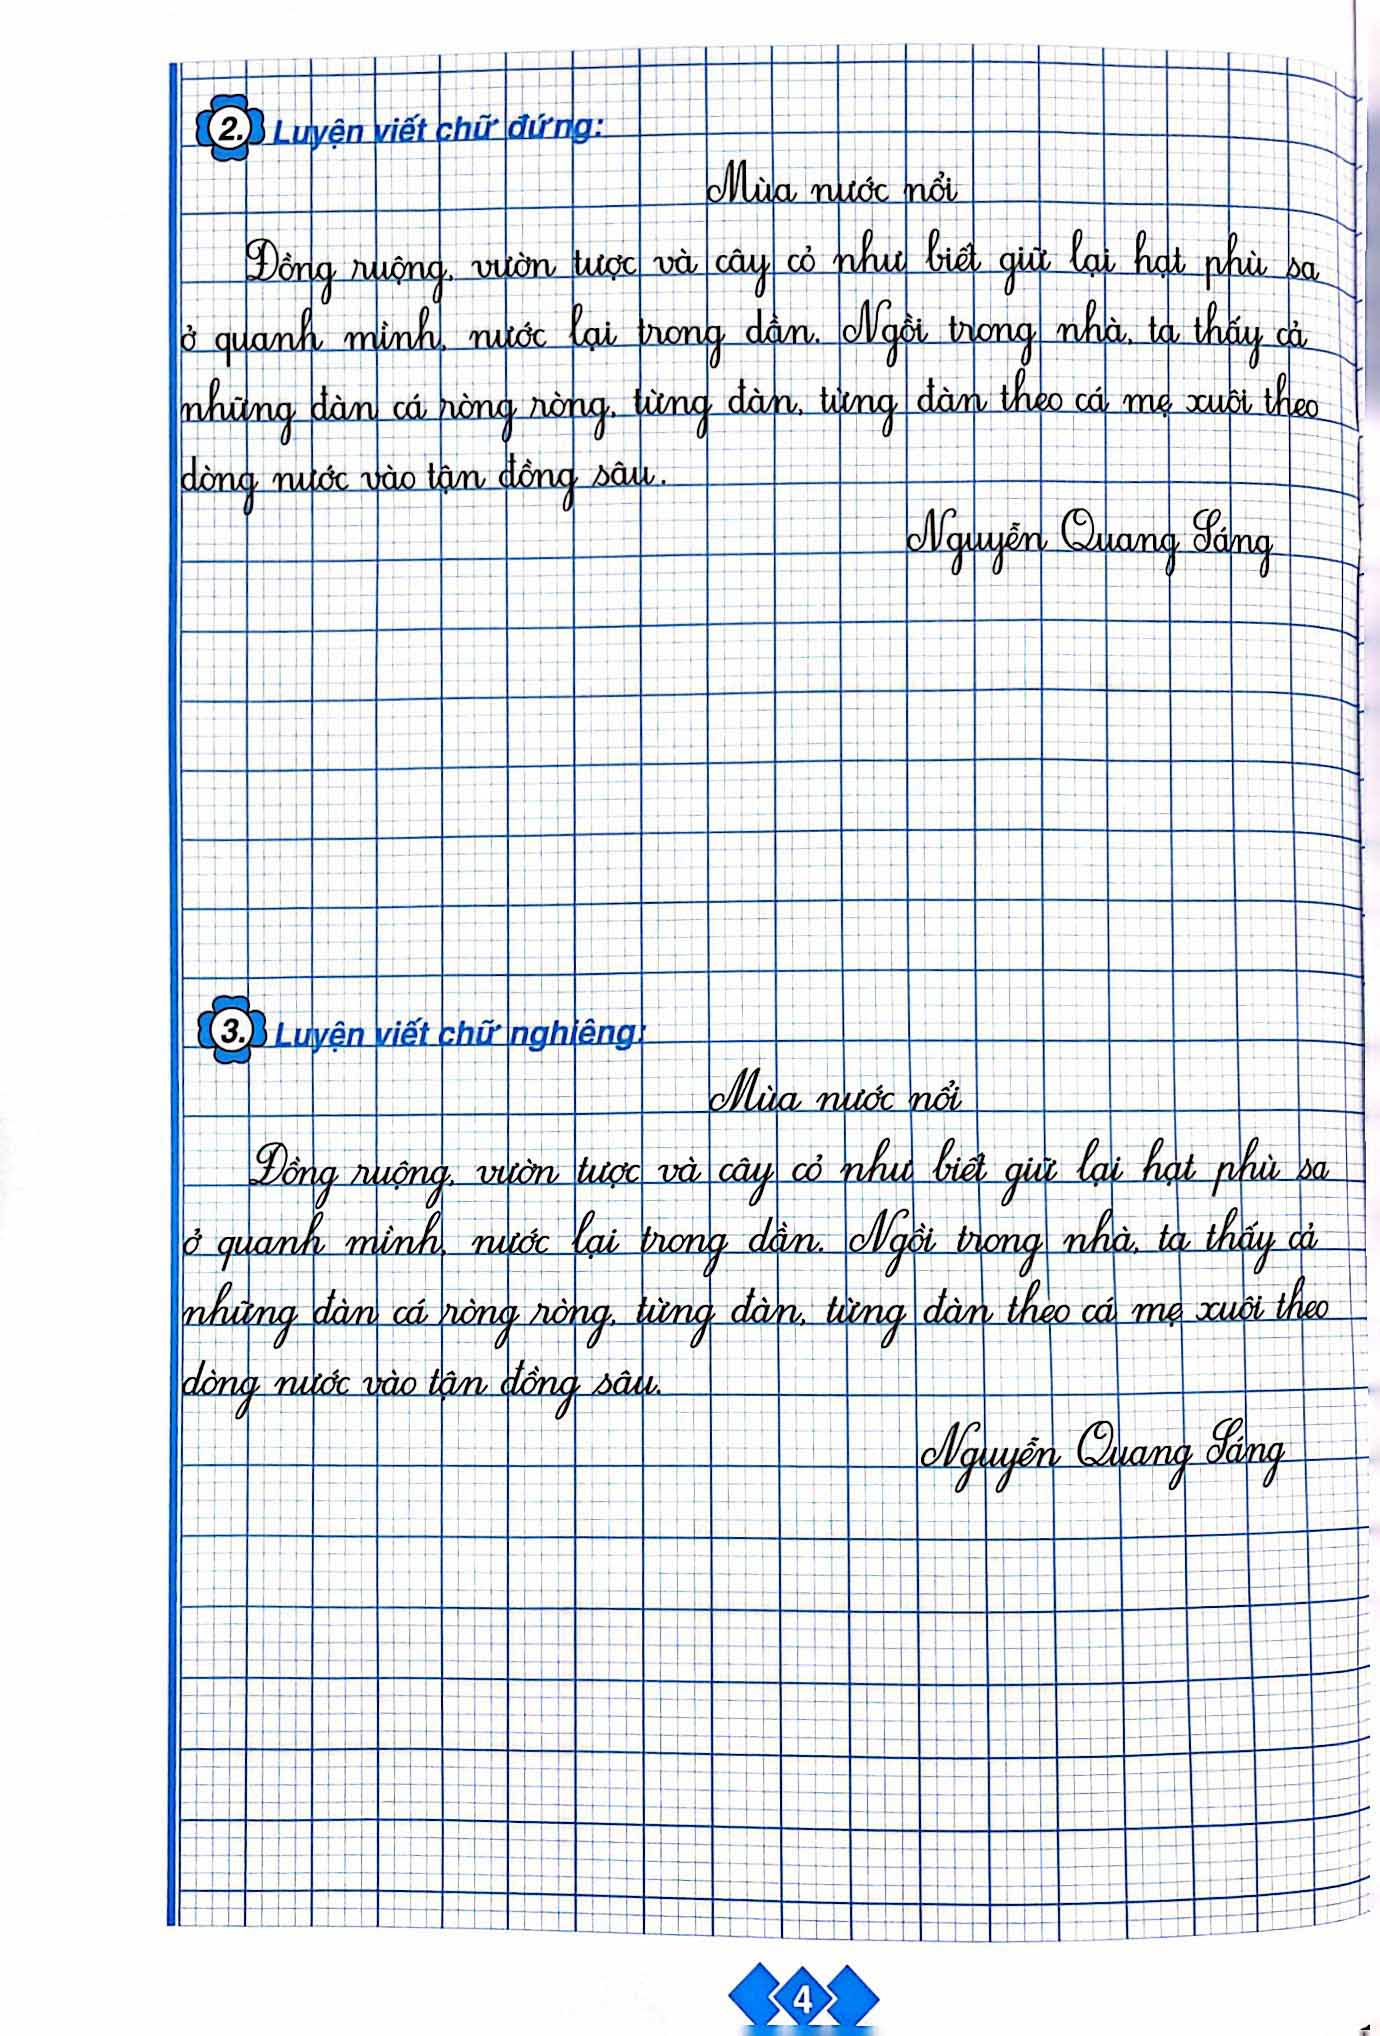 2. Luyện viết chữ đứng:
Mùa nước nổi
Đồng ruộng, vườn tược và cây cỏ như biết giữ lại hạt phù sa
ở quanh mình, nước lại trong dần. Ngồi trong nhà, ta thấy cả
những đàn cá ròng ròng, từng đàn, từng đàn theo cá mẹ xuôi theo
dòng nước vào tận đồng sâu.
Nguyễn Quang Sáng
3. Luyện viết chữ nghiêng:
Mùa nước nổi
Đồng ruộng, vườn tược và cây cỏ như biết giữ lại hạt phù sa
ở quanh mình, nước lại trong dần. Ngồi trong nhà, ta thấy cả
những đàn cá ròng ròng, từng đàn, từng đàn theo cá mẹ xuôi theo
dòng nước vào tận đồng sâu.
Nguyễn Quang Sáng
4